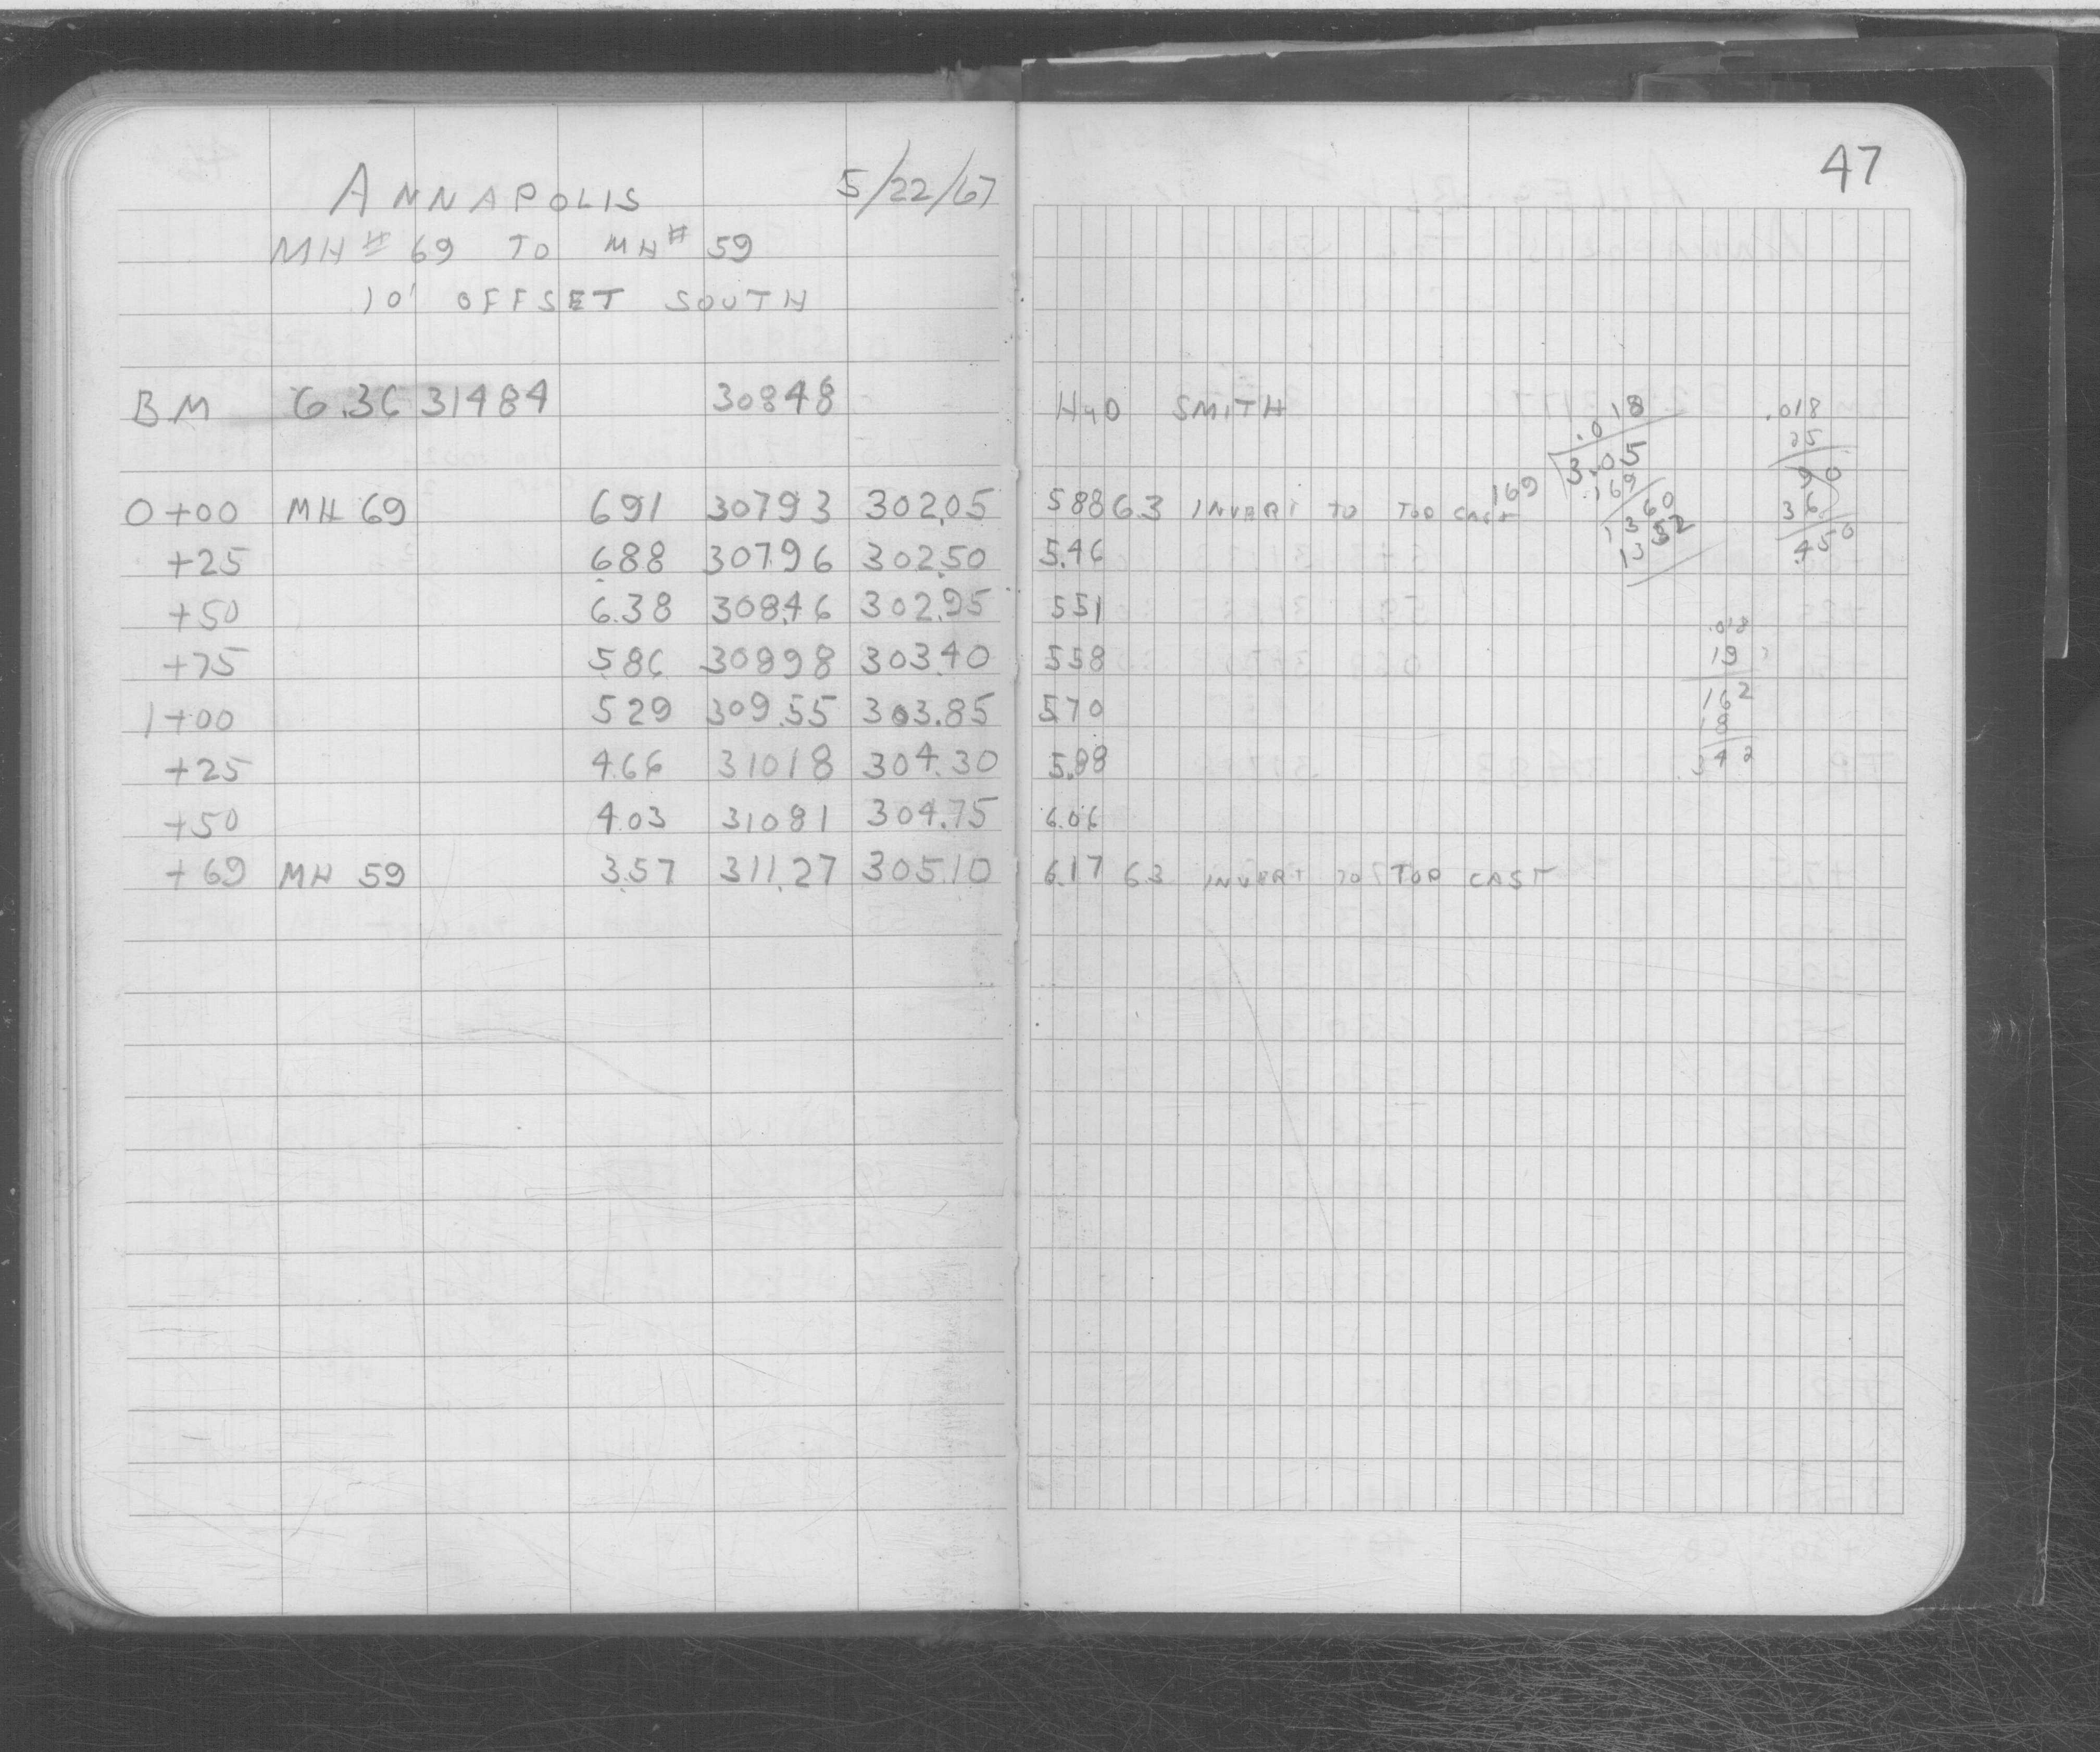 47
ANNAPOLIS 5/22/67
MH# 69 TO MH# 59
10' OFFSET SOUTH
BM 6.36 31484 30848 HYD SMITH
0+00 MH 69 691 30793 302.05 588 63 INVERT TO TOP CAST
+25 688 307.96 302.50 5.46
+50 6.38 308.46 302.95 551
+75 5.86 30898 303.40 558
1+00 529 309.55 303.85 5.70
+25 4.66 31018 304.30 5.88
+50 4.03 31081 304.75 6.06
+69 MH 59 3.57 311.27 305.10 6.17 63 INVERT TO TOP CAST
.018
169 3.05
169
1360
1352
.018
25
90
36
.450
.018
19
162
18
342